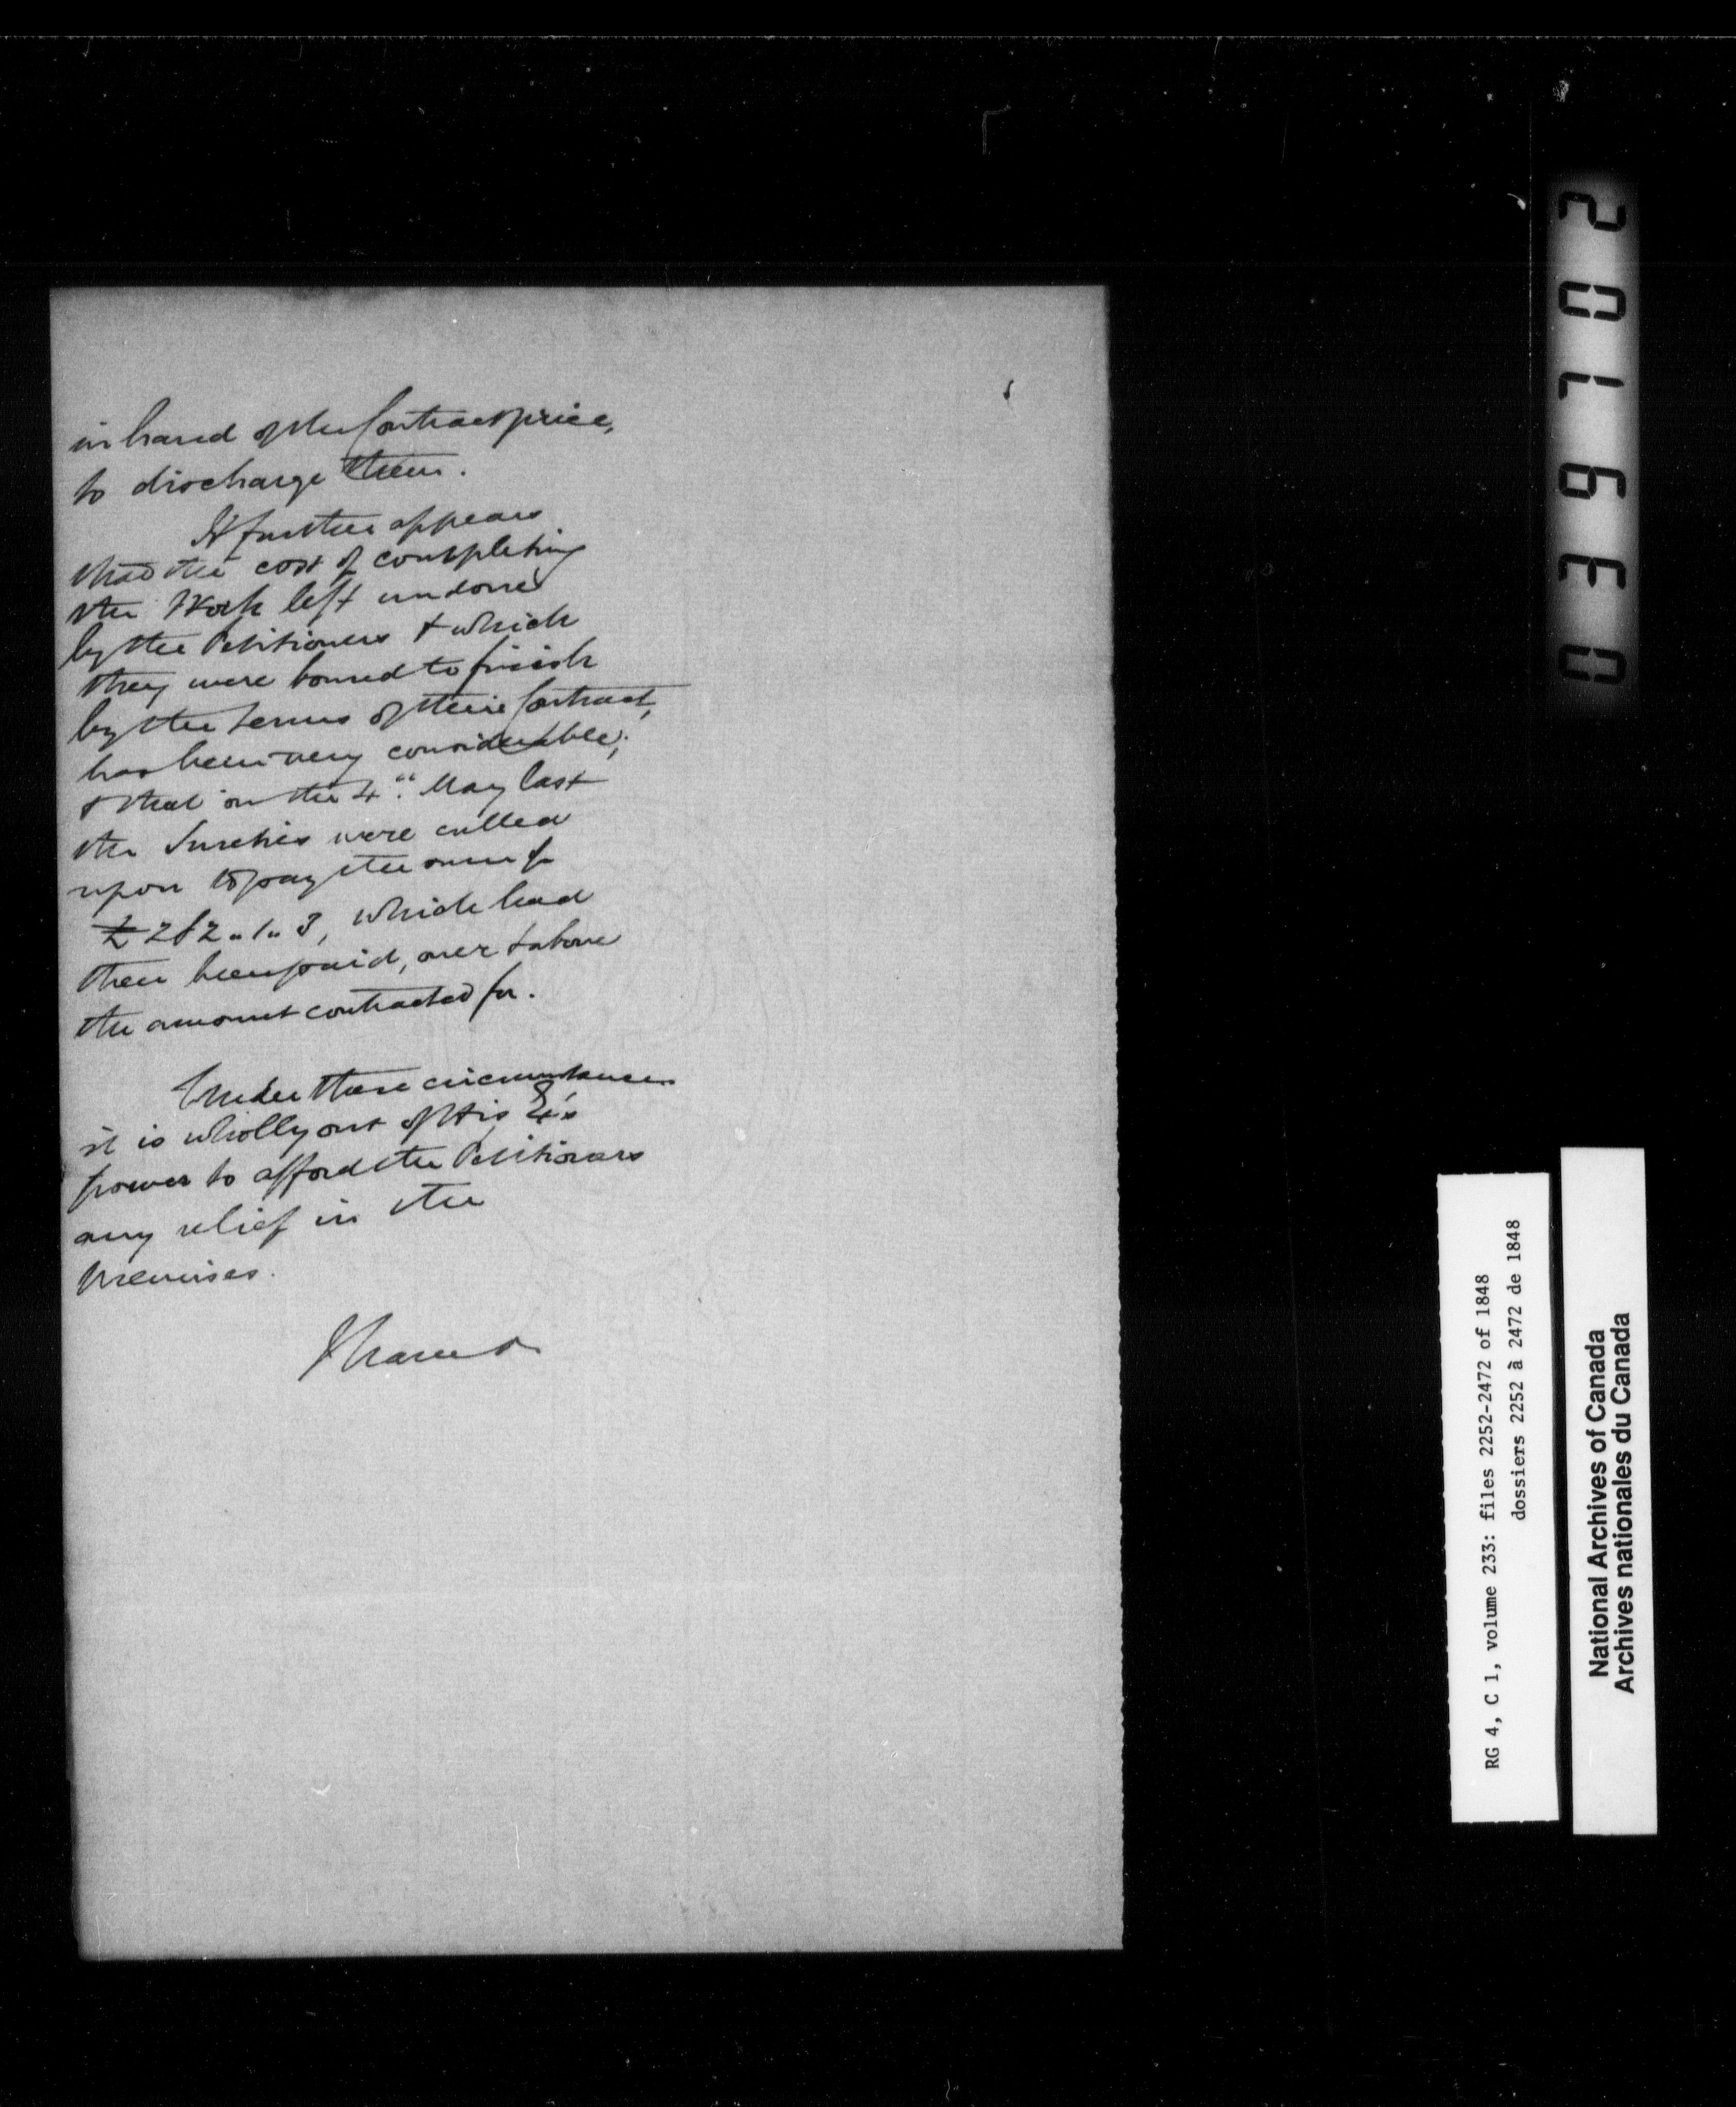 in hand of the Contract price,
to discharge them.
It further appears
that the cost of completing
the Work left undone
by the Petitioners & which
they were bound to finish
by the terms of their Contract,
has been very considerable;
& that on the 4" May last
the Sureties were called
upon to pay the sum of
£ 282 " 1 " 3, which had
then been paid, over & above
the amount contracted for.
Under these circumstances
it is wholly out of His Ex's
power to afford the Petitioners
any relief in the
premises.
I have &
020179630
RG 4, C 1, volume 233: files 2252-2472 of 1848
dossiers 2252 à 2472 de 1848
National Archives of Canada
Archives nationales du Canada